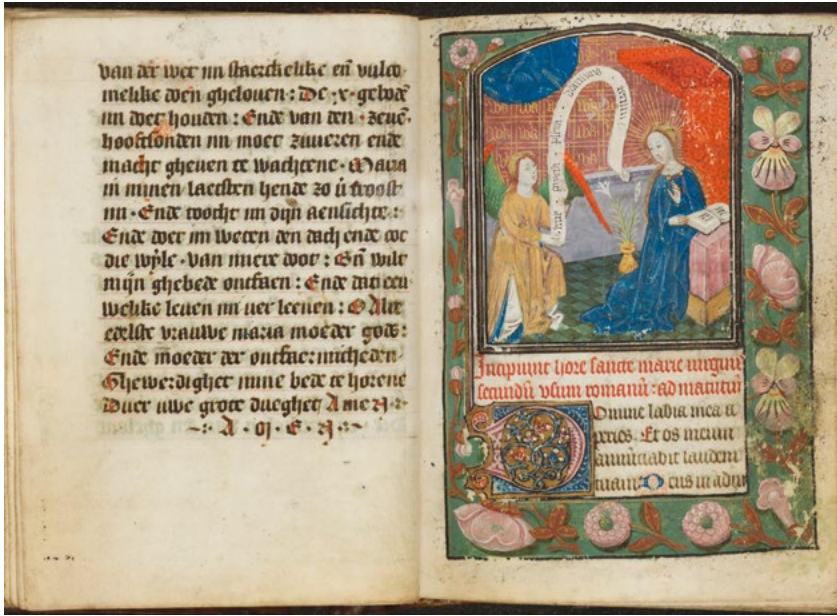 van der wet mi staerckelike en̄ vulco
melike doen ghelouen : De .x. gebodē
mi doet houden : Ende van den . zeuē .
hooftsonden mi moet zuueren ende
macht gheuen te wachtene . Maria
in minen laetsten hende zo ū troost
mi . Ende toocht mi dijn aensichte :
Ende doet mi weten den dach ende tot
die wyle . van miere doot : En̄ wilt
mijn ghebede ontfaen : Ende dat eeu
welike leuen mi uer leenen : O Alre
edelste vrauwe maria moeder gods :
Ende moeder der ontfaermicheden .
Ghewerdighet mine bede te horene
Duer uwe grote dueghet Amen .
A . M . E . N .
30
aue gracia plena dominus
Incipiunt hore sancte marie virginis
secundū vsum romanū : ad matutin
Domine labia mea a
peries . Et os meum
annūciabit laudem
tuam Deus in adiu